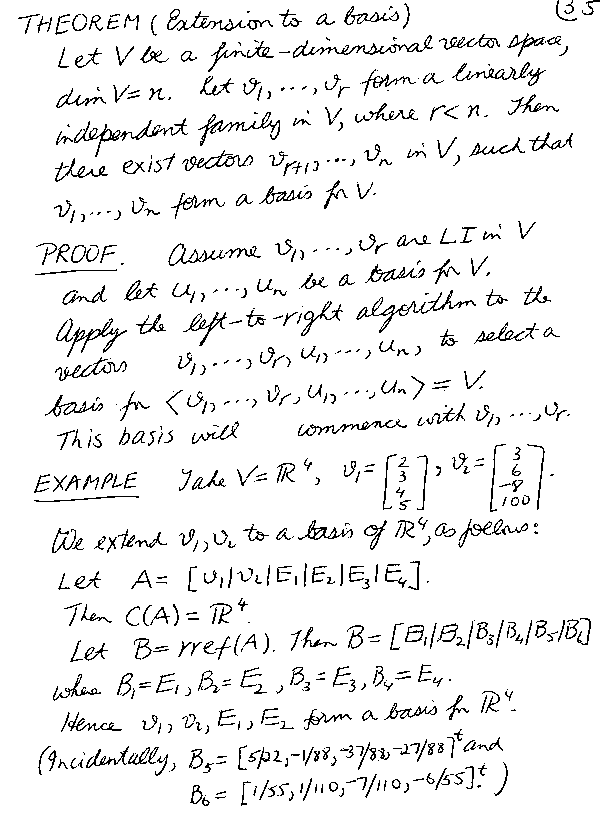 THEOREM (Extension to a basis) 35
Let V be a finite-dimensional vector space,
dim V = n. Let v₁, ..., vᵣ form a linearly
independent family in V, where r < n. Then
there exist vectors vᵣ₊₁, ..., vₙ in V, such that
v₁, ..., vₙ form a basis for V.
PROOF. Assume v₁, ..., vᵣ are LI in V
and let u₁, ..., uₙ be a basis for V.
Apply the left-to-right algorithm to the
vectors v₁, ..., vᵣ, u₁, ..., uₙ, to select a
basis for <v₁, ..., vᵣ, u₁, ..., uₙ> = V.
This basis will commence with v₁, ..., vᵣ.
EXAMPLE Take V = ℝ⁴, v₁ = [2 3 4 5], v₂ = [3 6 -8 100].
We extend v₁, v₂ to a basis of ℝ⁴, as follows:
Let A = [v₁|v₂|E₁|E₂|E₃|E₄].
Then C(A) = ℝ⁴.
Let B = rref(A). Then B = [B₁|B₂|B₃|B₄|B₅|B₆]
where B₁ = E₁, B₂ = E₂, B₃ = E₃, B₄ = E₄.
Hence v₁, v₂, E₁, E₂ form a basis for ℝ⁴.
(Incidentally, B₅ = [5/22, -1/88, -37/88, -27/88]ᵗ and
B₆ = [1/55, 1/110, -7/110, -6/55]ᵗ.)